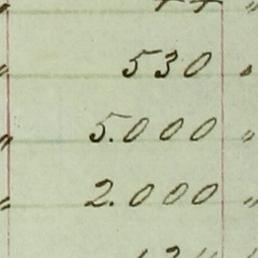 " 530 "
" 5.000 "
" 2.000 "